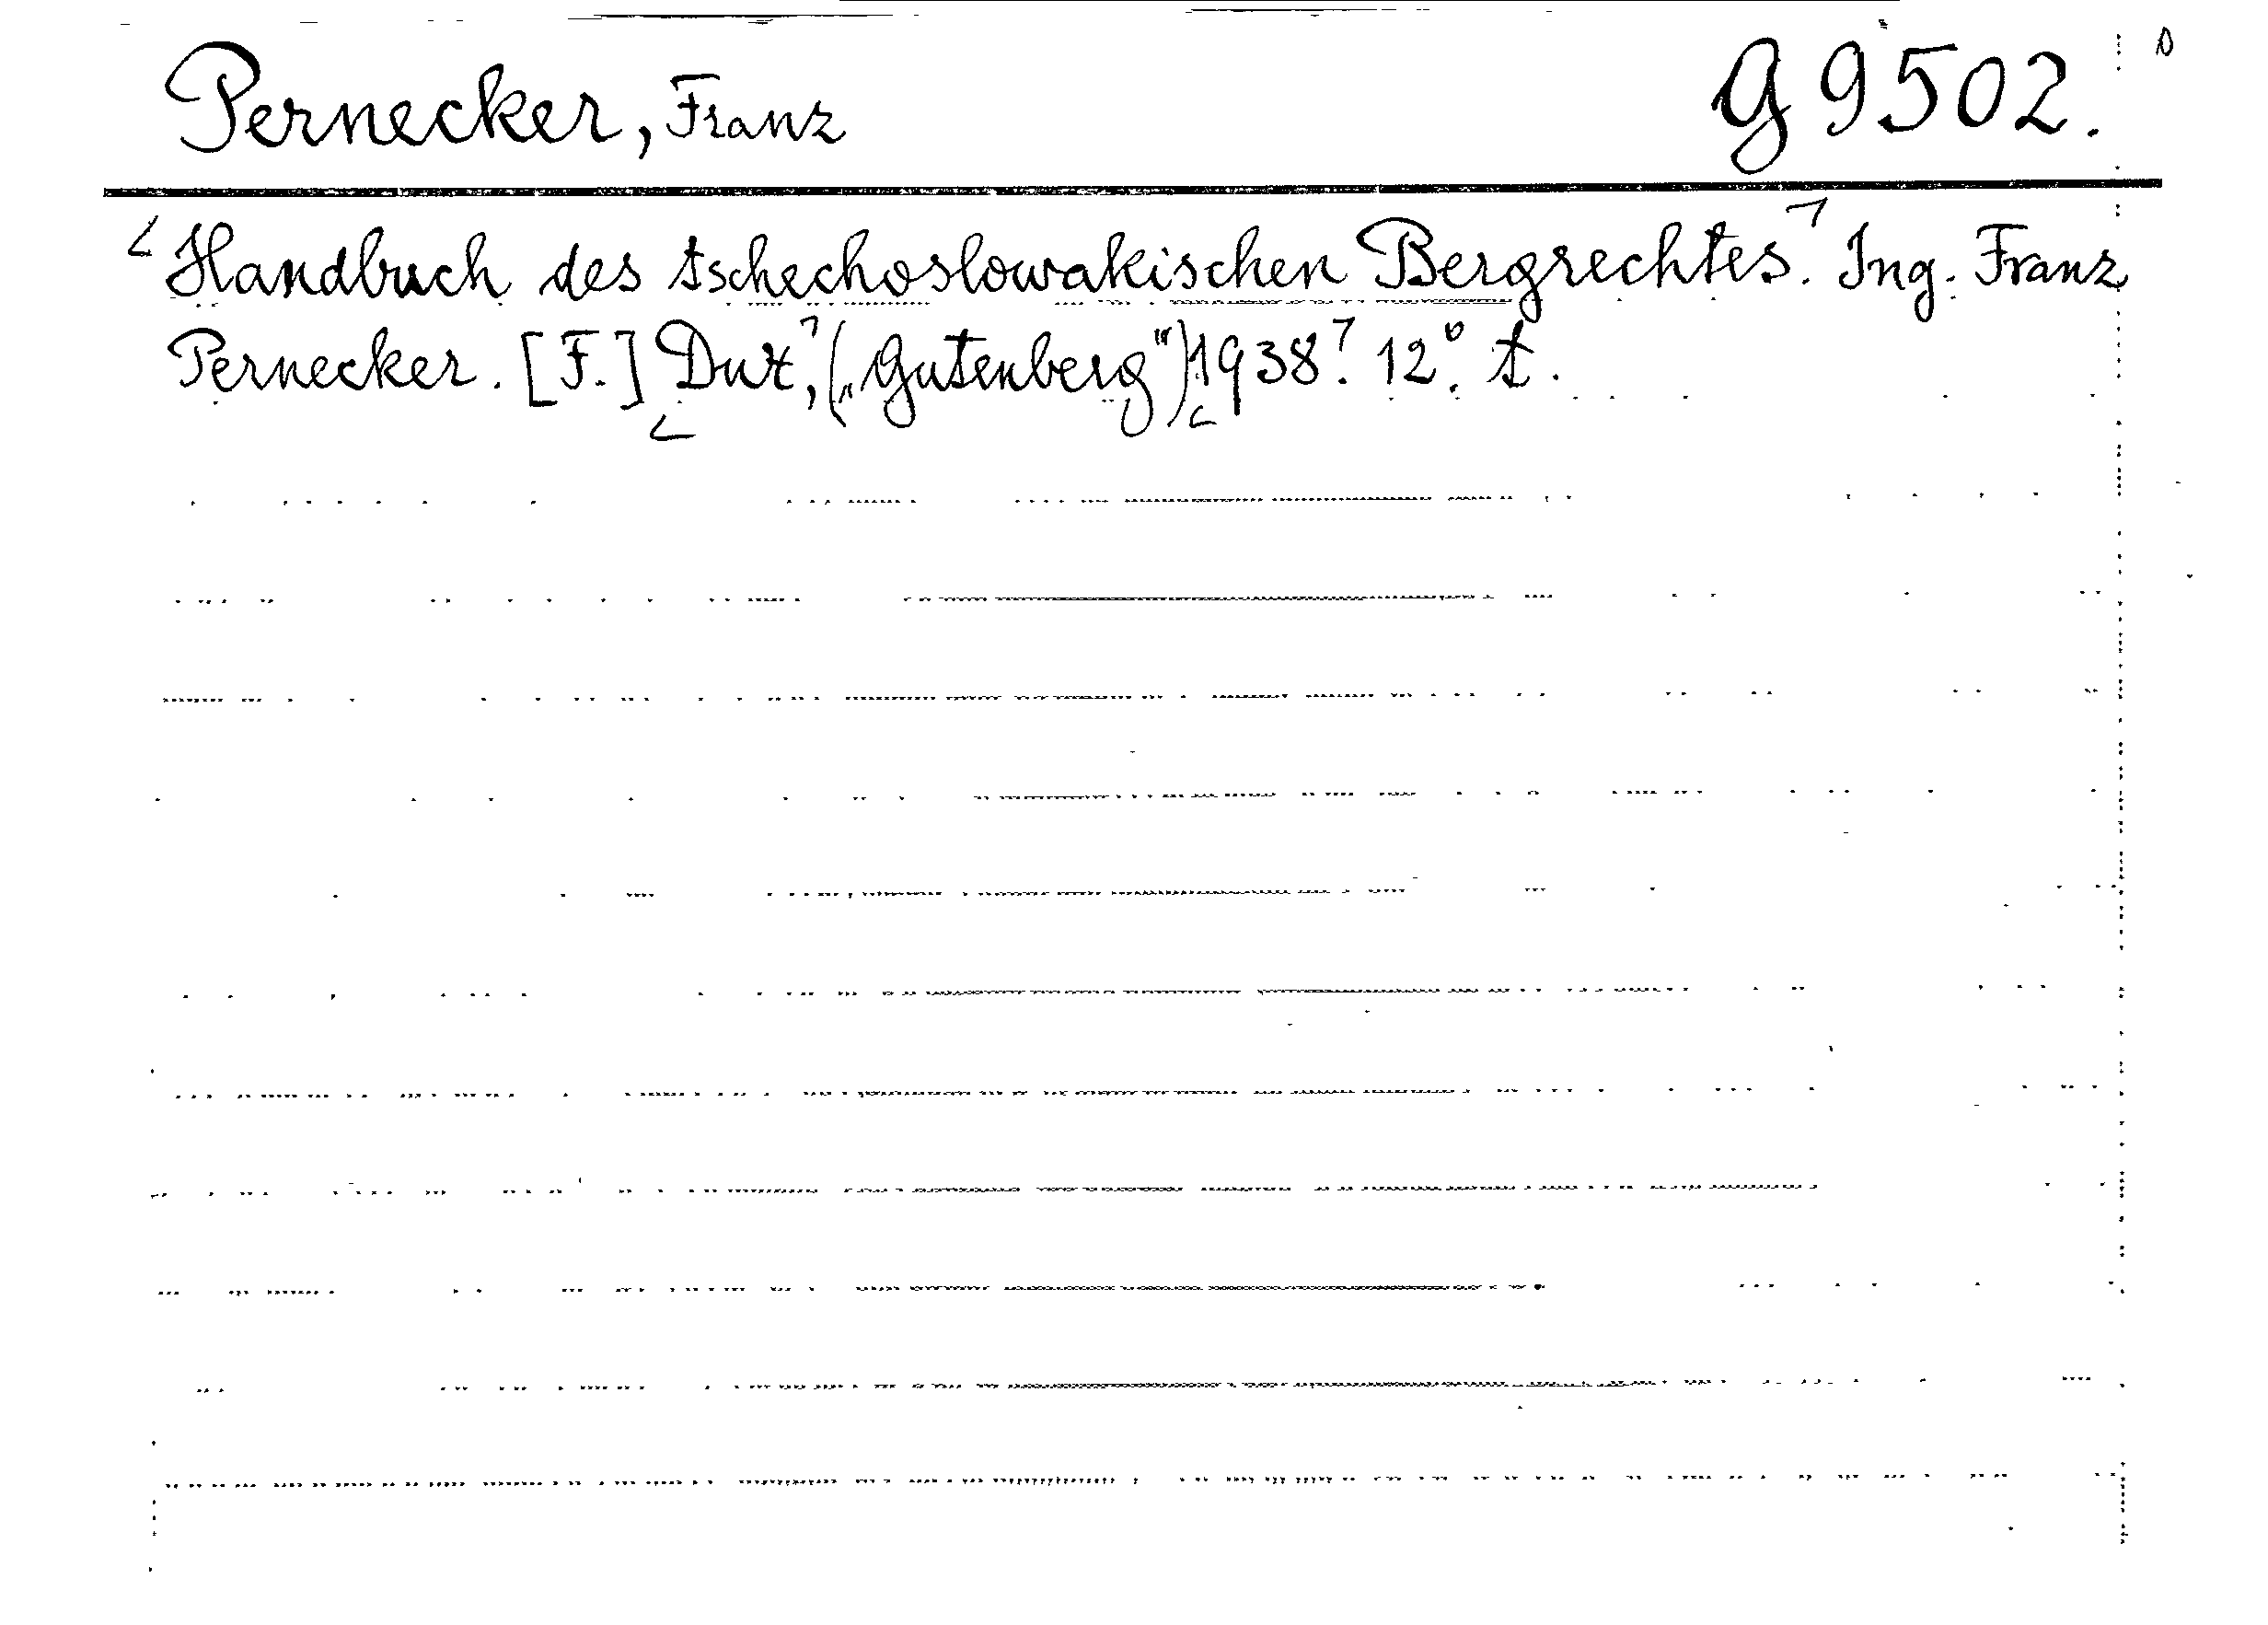 Pernecker, Franz G 9502.
Handbuch des tschechoslowakischen Bergrechtes. Ing. Franz
Pernecker. [F.] Dux, („Gutenberg“) 1938. 12°. t.